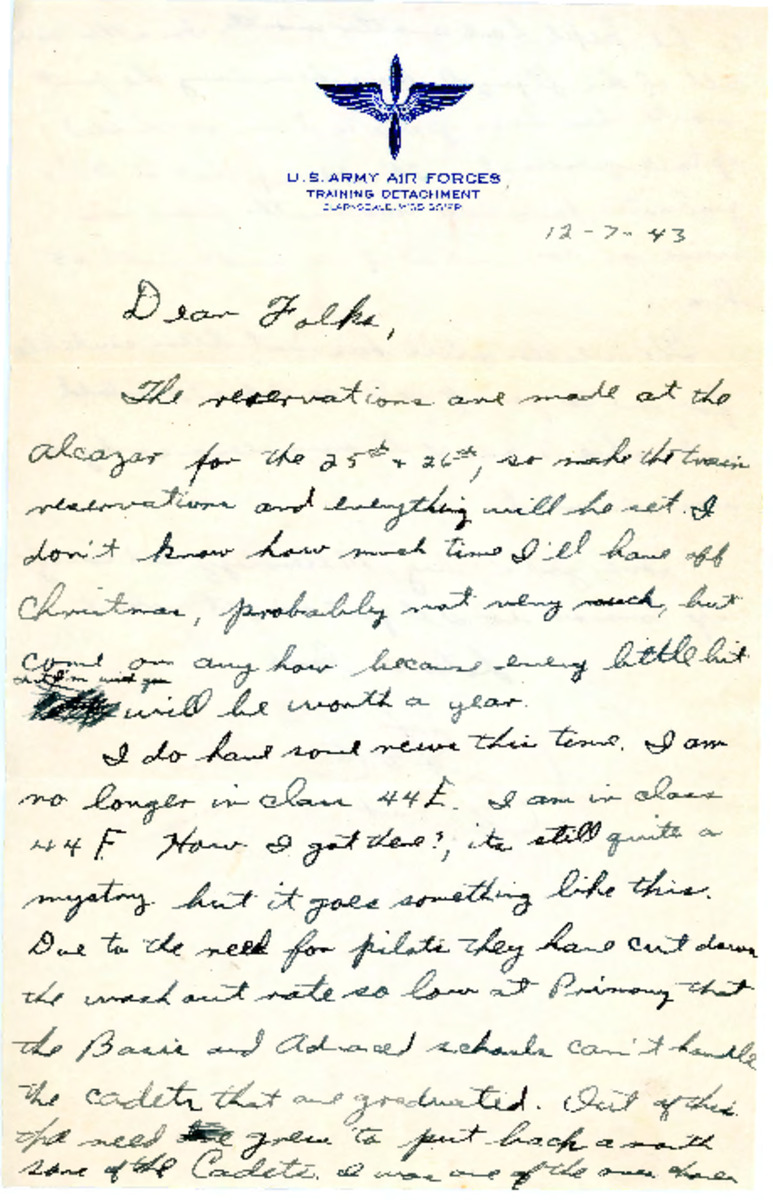 U.S. ARMY AIR FORCES
TRAINING DETACHMENT
CLARKSDALE, MISSISSIPPI
12-7-43
Dear Folks,
The reservations are made at the
alcazar for the 25th + 26th, so make the train
reservations and everything will be set. I
don't know how much time I'll have off
Christmas, probably not very much, but
come on any how because every little bit
I'm with you
will be worth a year.
I do have some news this time. I am
no longer in class 44E. I am in class
44F. How I got there?, its still quite a
mystory but it goes something like this.
Due to the need for pilots they have cut down
the wash out rate so low at Primary that
the Basic and Advanced schools can't handle
the cadets that are graduated. Out of this
the need grew to put back a month
some of the Cadets. I was one of the ones chosen